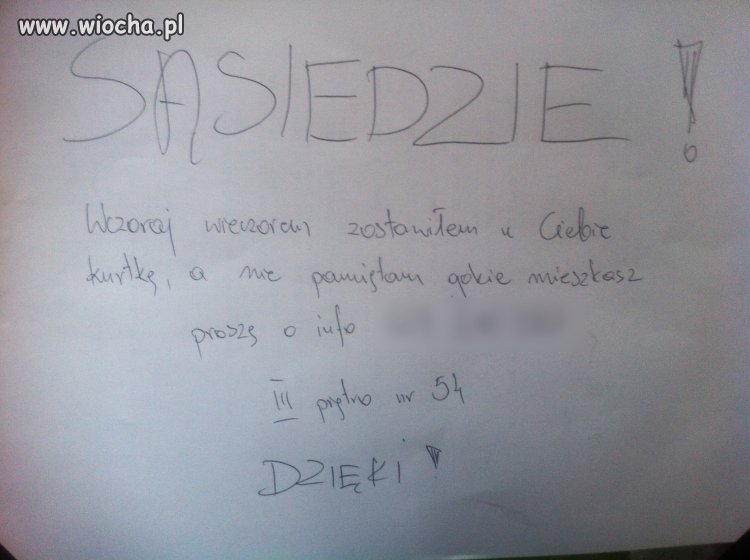 www.wiocha.pl
SĄSIEDZIE!
Wczoraj wieczorem zostawiłem u Ciebie
kurtkę, a nie pamiętam gdzie mieszkasz
proszę o info
III piętro nr 54
DZIĘKI!